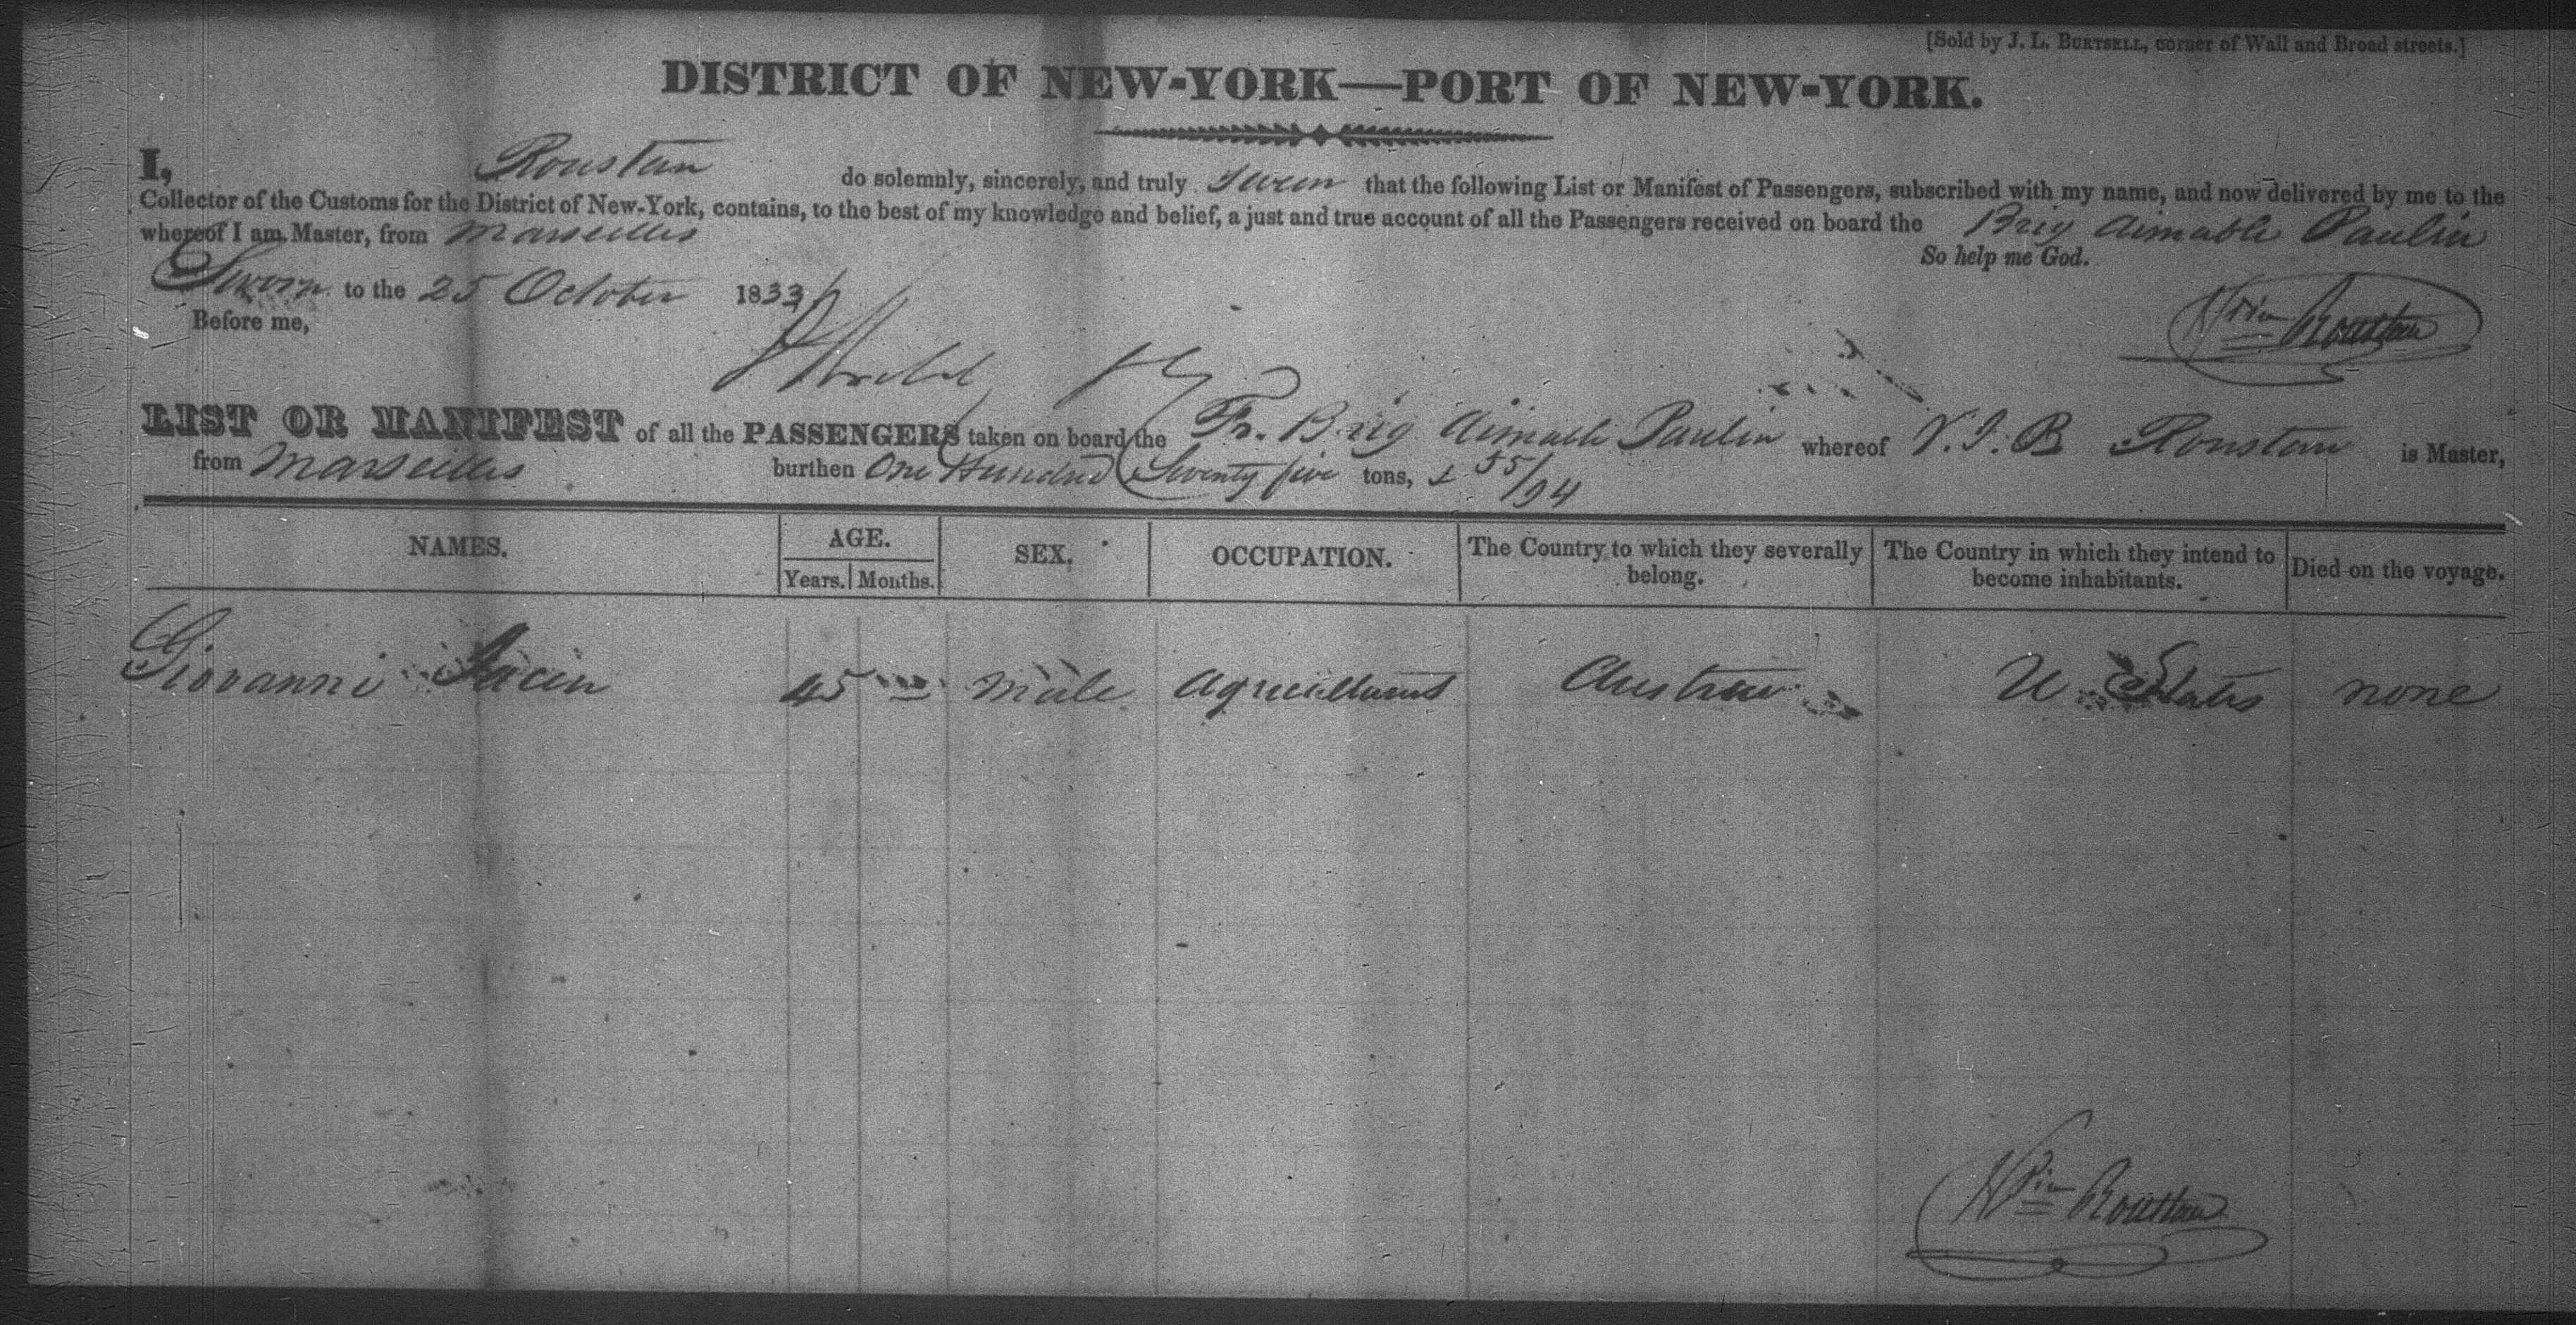 [Sold by J. L. BURTSELL, corner of Wall and Broad streets.]
DISTRICT OF NEW-YORK—PORT OF NEW-YORK.
I, Roustan do solemnly, sincerely, and truly swear that the following List or Manifest of Passengers, subscribed with my name, and now delivered by me to the
Collector of the Customs for the District of New-York, contains, to the best of my knowledge and belief, a just and true account of all the Passengers received on board the Brig Aimable Paulin
whereof I am Master, from Marseilles
So help me God.
Sworn to the 25 October 1833
Before me,
Roustan
LIST OR MANIFEST of all the PASSENGERS taken on board the Fr. Brig Aimable Paulin whereof V. J. B Roustan is Master,
from Marseilles burthen One Hundred Seventy five tons, 55/94
NAMES. AGE. SEX. OCCUPATION. The Country to which they severally belong. The Country in which they intend to become inhabitants. Died on the voyage.
Years. Months.
Giovanni 45 Male Agriculturist Austria U. States none
Roustan